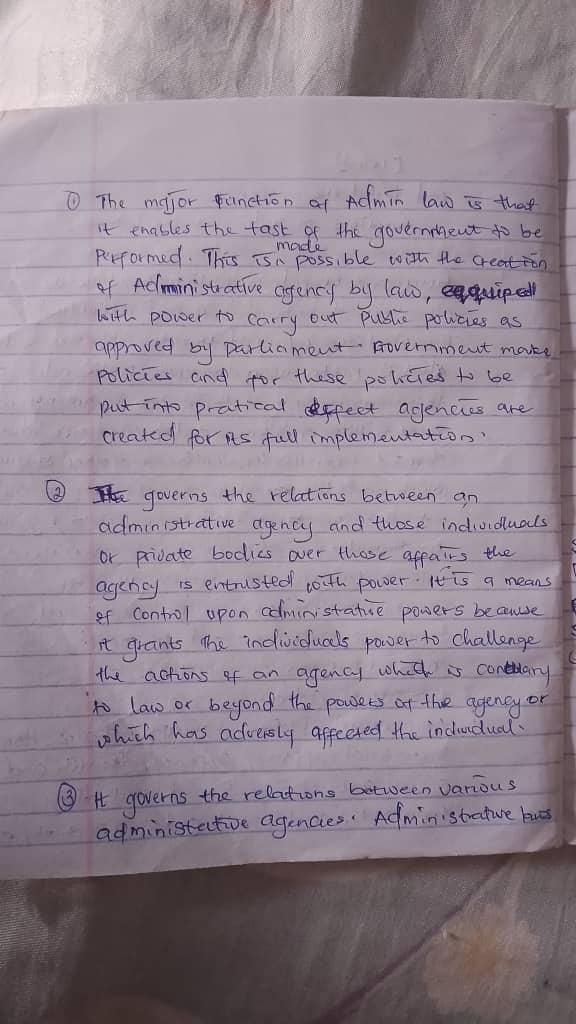 ① The major function of Admin law is that
it enables the task of the government to be
Performed. This is made possible with the creation
of Administrative agency by law, equuiped
with power to carry out public policies as
approved by parliament. Government make
policies and for these policies to be
put into pratical effect agencies are
created for its full implementation.
② It governs the relations between an
administrative agency and those individuals
or private bodies over those affairs the
agency is entrusted with power. It is a means
of control upon administative powers because
it grants the individuals power to challenge
the actions of an agency which is contrary
to law or beyond the powers of the agency or
which has adversly affected the individual.
③ It governs the relations between various
administrative agencies. Administrative laws